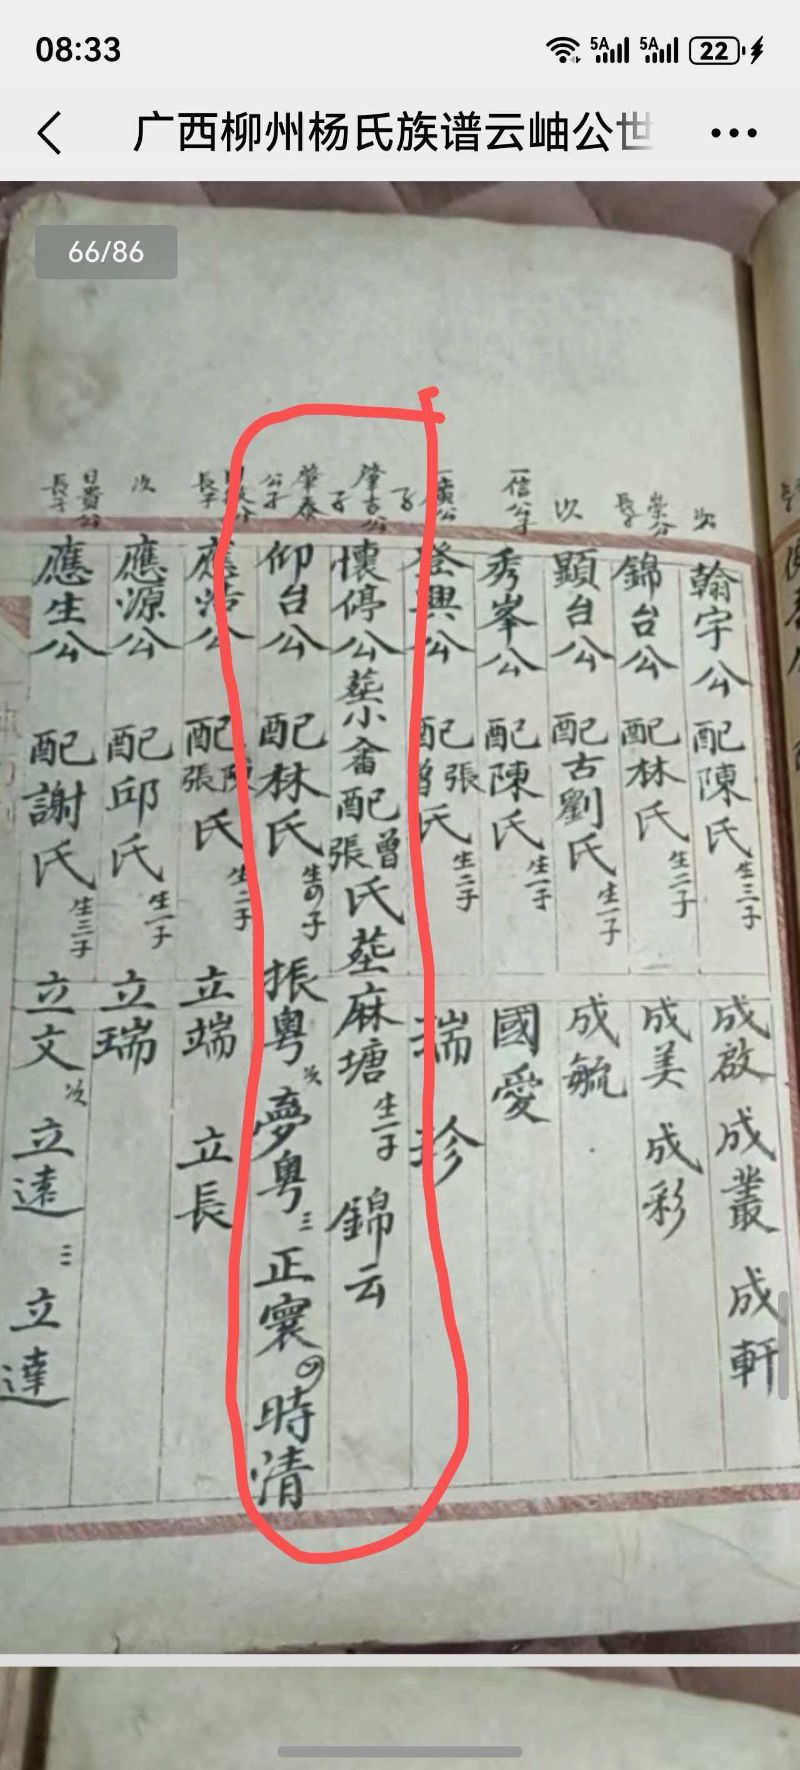 08:33
5A 5A 22
广西柳州杨氏族谱云岫公世
66/86
次
翰宇公 配陳氏 生三子 成啟 成叢 成軒
崇公長子
錦台公 配林氏 生二子 成美 成彩
次
顯台公 配古劉氏 生一子 成毓
一信公子
秀峯公 配陳氏 生一子 國愛
一廣公子
登興公 配張曾氏 生二子 瑞珍
肇吉公子
懷停公 葬小畲 配曾張氏 葬麻塘 生一子 錦云
肇泰公子
仰台公 配林氏 生四子 振粤 次 夢粤 三 正寰 四 時清
長子
應浩公 配陳張氏 生二子 立端 立長
次
應源公 配邱氏 生一子 立瑞
日貴公長子
應生公 配謝氏 生三子 立文 次 立遠 三 立達